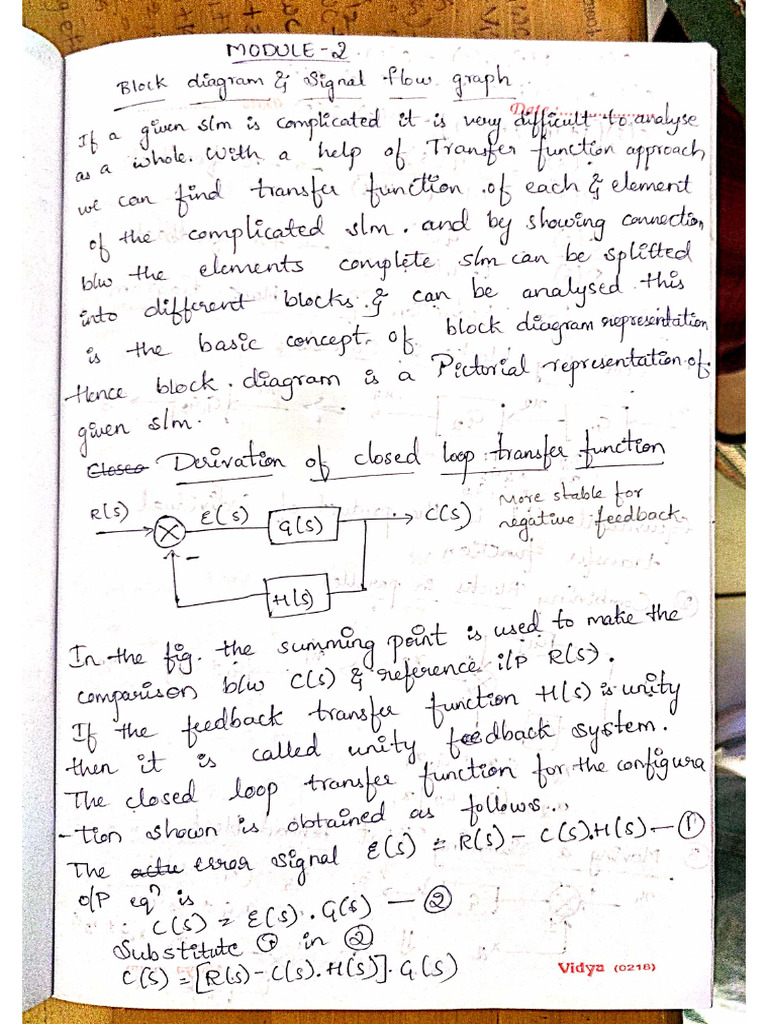 MODULE-2.
Block diagram & Signal flow graph
Date:
If a given s/m is complicated it is very difficult to analyse
as a whole. With a help of Transfer function approach
we can find transfer function of each & element
of the complicated s/m. and by showing connection
b/w the elements complete s/m can be splitted
into different blocks & can be analysed this
is the basic concept of block diagram representation
Hence block diagram is a Pictorial representation of
given s/m.
Closed Derivation of closed loop transfer function
R(s) E(s) G(s) C(s) More stable for
negative feedback
-
H(s)
In the fig. the summing point is used to make the
comparison b/w C(s) & reference i/p R(s).
If the feedback transfer function H(s) is unity
then it is called unity feedback system.
The closed loop transfer function for the configura
-tion shown is obtained as follows..
The actu error signal E(s) = R(s) - C(s).H(s) — ①
o/p eqn is
C(s) = E(s). G(s) — ②
Substitute ① in ②
C(s) = [R(s) - C(s). H(s)]. G(s)
Vidya (0218)